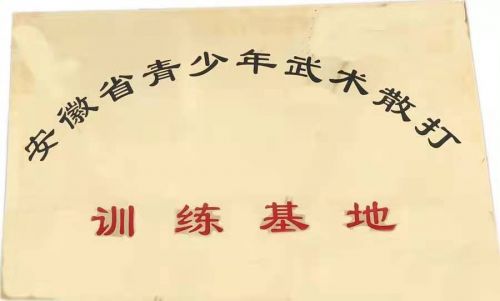 安徽省青少年武术散打
训练基地